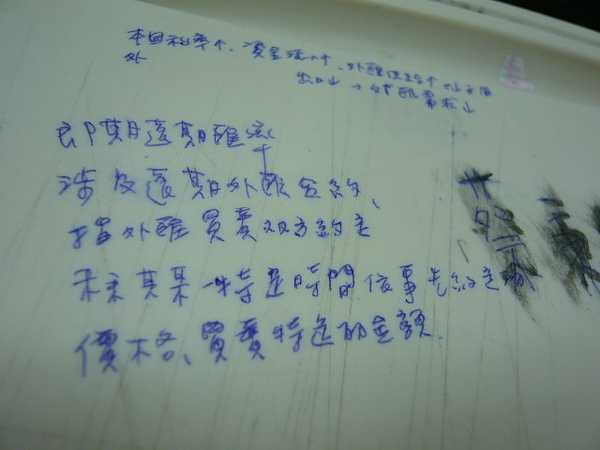 本國利率↑、資金流入↑、外匯供給↑
外
出口↓→外匯需求↓
即期遠期匯率
涉及遠期外匯合約、
指外匯買賣双方約定
未來某一特定時間依事先約定
價格、買賣特定的金額.